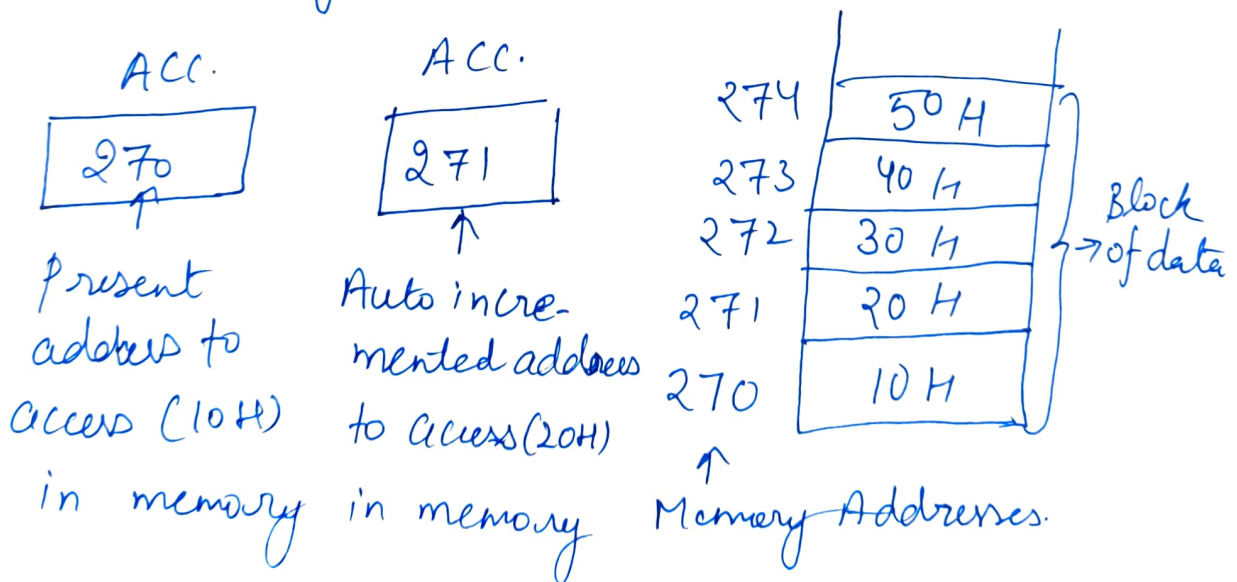 ACC.
270
↑
Present
address to
access (10H)
in memory
ACC.
271
↑
Auto incre-
mented address
to access (20H)
in memory
274 50 H
273 40 H
272 30 H
271 20 H
270 10 H
↑
Memory Addresses.
Block
→ of data